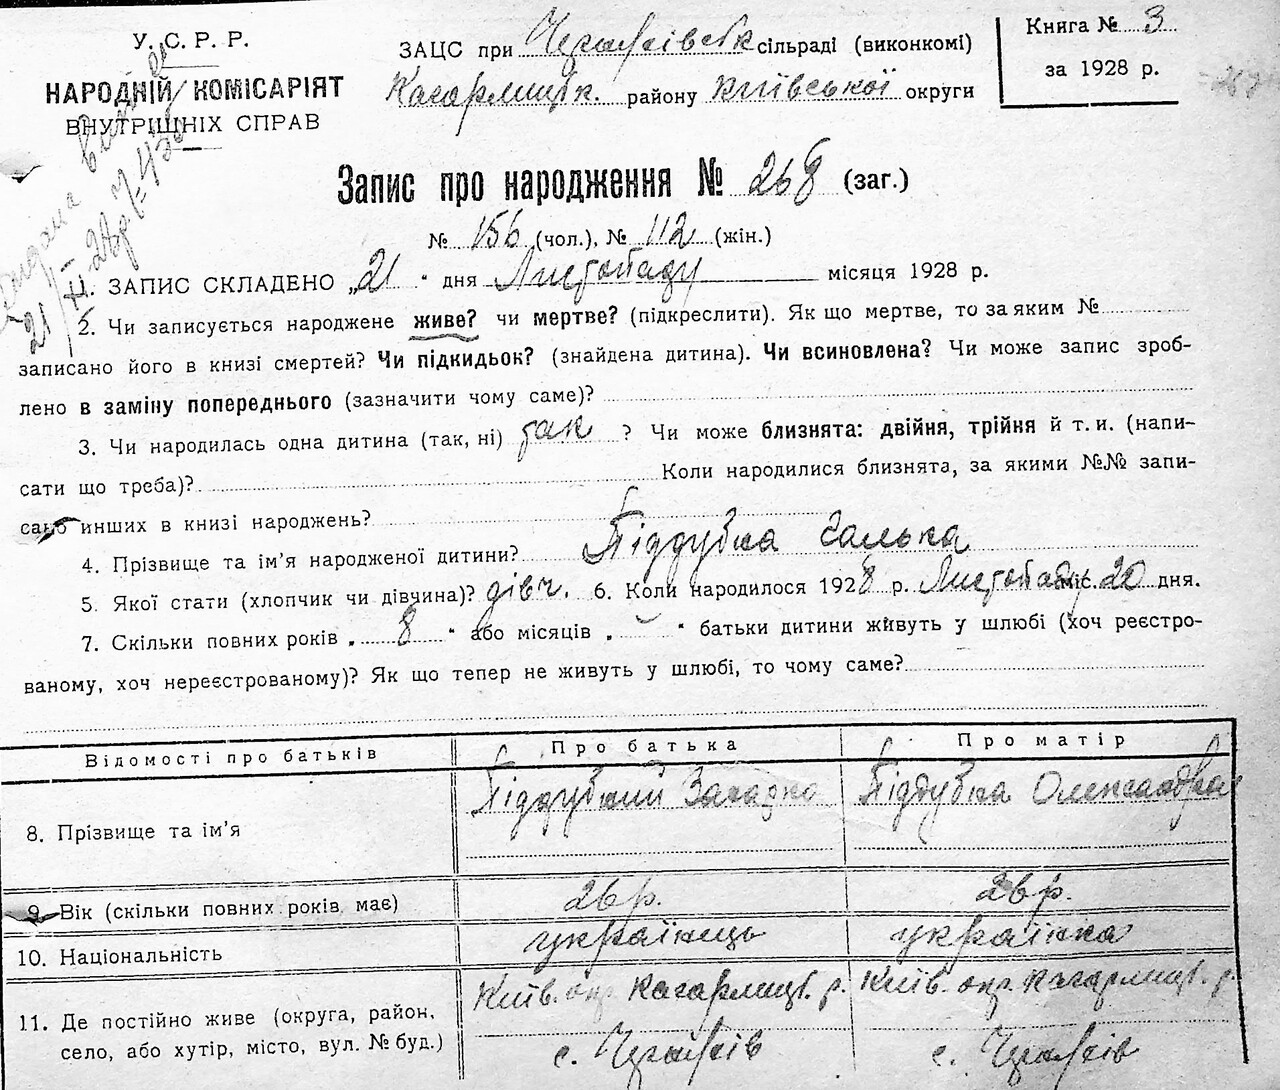 У. С. Р. Р.
НАРОДНІЙ КОМІСАРІЯТ
ВНУТРІШНІХ СПРАВ
ЗАЦС при сільраді (виконкомі)
Кагарлицьк. району Київської округи
Книга № 3
за 1928 р.
Запис про народження № 268 (заг.)
№ 156 (чол.), № 112 (жін.)
1. ЗАПИС СКЛАДЕНО „21 " дня Листопаду місяця 1928 р.
2. Чи записується народжене живе? чи мертве? (підкреслити). Як що мертве, то за яким №
записано його в книзі смертей? Чи підкидьок? (знайдена дитина). Чи всиновлена? Чи може запис зроб-
лено в заміну попереднього (зазначити чому саме)?
3. Чи народилась одна дитина (так, ні) так ? Чи може близнята: двійня, трійня й т. и. (напи-
сати що треба)? Коли народилися близнята, за якими №№ запи-
сано инших в книзі народжень?
4. Прізвище та ім'я народженої дитини? Піддубна Галька
5. Якої стати (хлопчик чи дівчина)? дівч. 6. Коли народилося 1928 р. Листопаду міс. 20 дня.
7. Скільки повних років „ 8 " або місяців „ - " батьки дитини живуть у шлюбі (хоч реєстро-
ваному, хоч нереєстрованому)? Як що тепер не живуть у шлюбі, то чому саме?
Відомості про батьків Про батька Про матір
8. Прізвище та ім'я Піддубний Захарко Піддубна Олександра
9. Вік (скільки повних років має) 26 р. 26 р.
10. Національність українець українка
11. Де постійно живе (округа, район, Київ. окр. Кагарлицьк. р. Київ. окр. Кагарлицьк. р.
село, або хутір, місто, вул. № буд.) с. с.